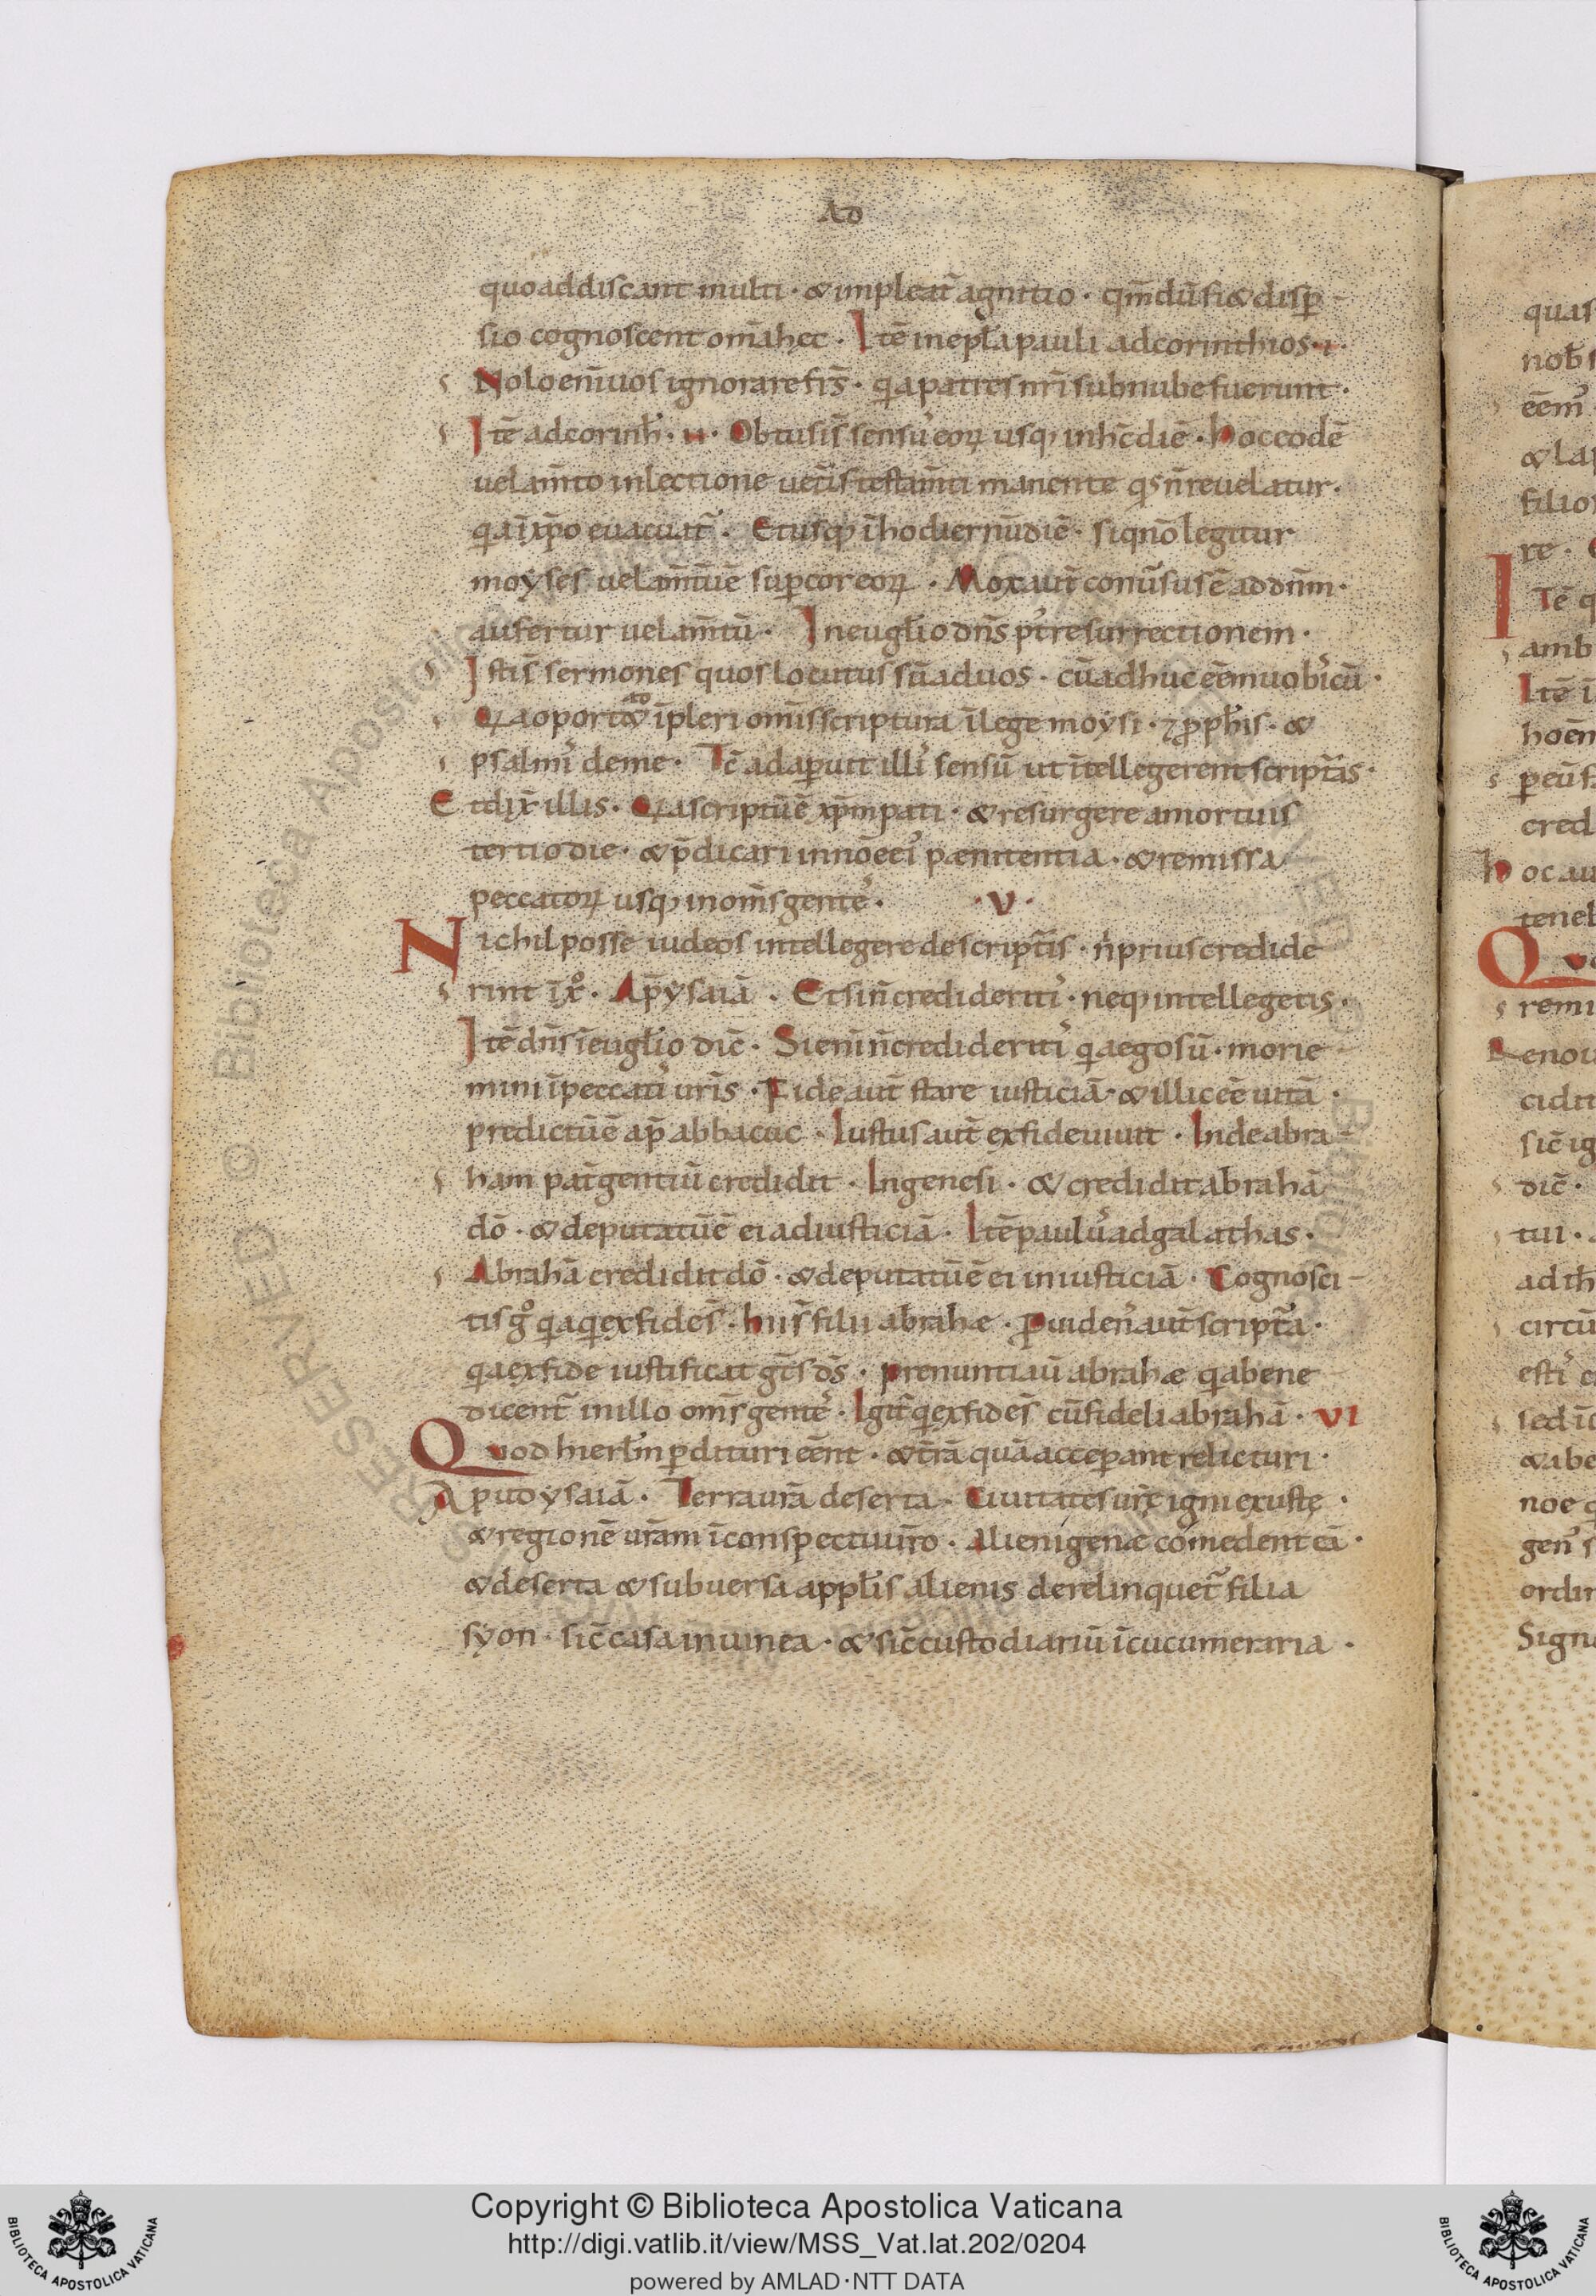 AD
quoaddiscant multi · & impleat̄ agnitio · qm̄dū fi& disp̄-
sio cognoscent om̄ahęc · Itē inepl̄a pauli adcorinthios · i ·
Nolo enīuos ignorare frs̄ · qia patres nr̄i subnube fuerunt ·
Itē adcorinh̄ · ii · Obtusis̄ sensu' eoꝝ usq; inhc̄ diē · hoc eodē
uelam̄to inlectione uet̄is testam̄ti manente qs n̄ reuelatur ·
qia ī xp̄o euacuat̄ · Etusq; īhodiernūdiē · siqn̄o legitur
moyses uelam̄tūē sup̄cor eoꝝ · Mox aut̄ conūsus ē addn̄m ·
aufertur uelam̄tū · Ineugl̄io dn̄s p't resurrectionem ·
Istis̄ sermones quos locutus sū aduos · cū adhuc eēm uobi'cū ·
Qꝝa oport& īpleri omīs scriptura ī lege moysi · ⁊ ꝓph̄is · &
psalmi' deme · Tc̄ adap̄uit illi' sensū ut ītellegerent script̄as ·
Et dix̄ illis · Qꝝa scriptūē xp̄m pati · & resurgere amortuis
tertio die · & p̄dicari innōe ei' pænitentia · & remissa
peccatoꝝ usq; inom̄s gente' · · V ·
Nichil posse iudeos intellegere descript̄is · n̄ prius credide
rint ī xº · Ap̄ ysaiā · Et si n̄ credideriti' · neq; intellegetis ·
Itē dn̄s ī eugl̄io dic̄ · Si enī n̄ credideriti' qia ego sū · morie-
mini ī peccati' ur̄is · Fide aut̄ stare iusticiā · & illic eē uitā ·
predictūē ap̄ abbacuc · Iustus aut̄ exfide uiuit · Inde abra-
ham pat̄ gentiū credidit · Ingenesi · & credidit abrahā
dō · & deputatūē ei adiusticiā · Itē paulu' adgalathas ·
Abrahā credidit dō · & deputatūē ei iniusticiā · Cognosci-
tis gº qia qi exfide s̄ · hii s̄ filii abrahæ · Ꝓuiden' aut̄ script̄a ·
qia exfide iustificat gt̄s ds̄ · prenuntiau' abrahæ qia bene
dicent̄ inillo om̄s gente' · Igit̄ qi exfide s̄ cū fideli abrahā · VI
Quod hierl̄m p̄dituri eēnt · & t̄rā quā accep̄ant relicturi ·
Aput ysaiā · Terra ur̄a deserta · Ciuitates ur̄ę igni exustę ·
& regionē ur̄am ī conspectu ur̄o · alienigenæ comedent eā ·
& deserta & subuersa appl̄is alienis derelinquet̄ filia
syon · sic̄ casa inuinea · & sic̄ custodiariū ī cucumeraria ·
Copyright © Biblioteca Apostolica Vaticana
http://digi.vatlib.it/view/MSS_Vat.lat.202/0204
powered by AMLAD·NTT DATA